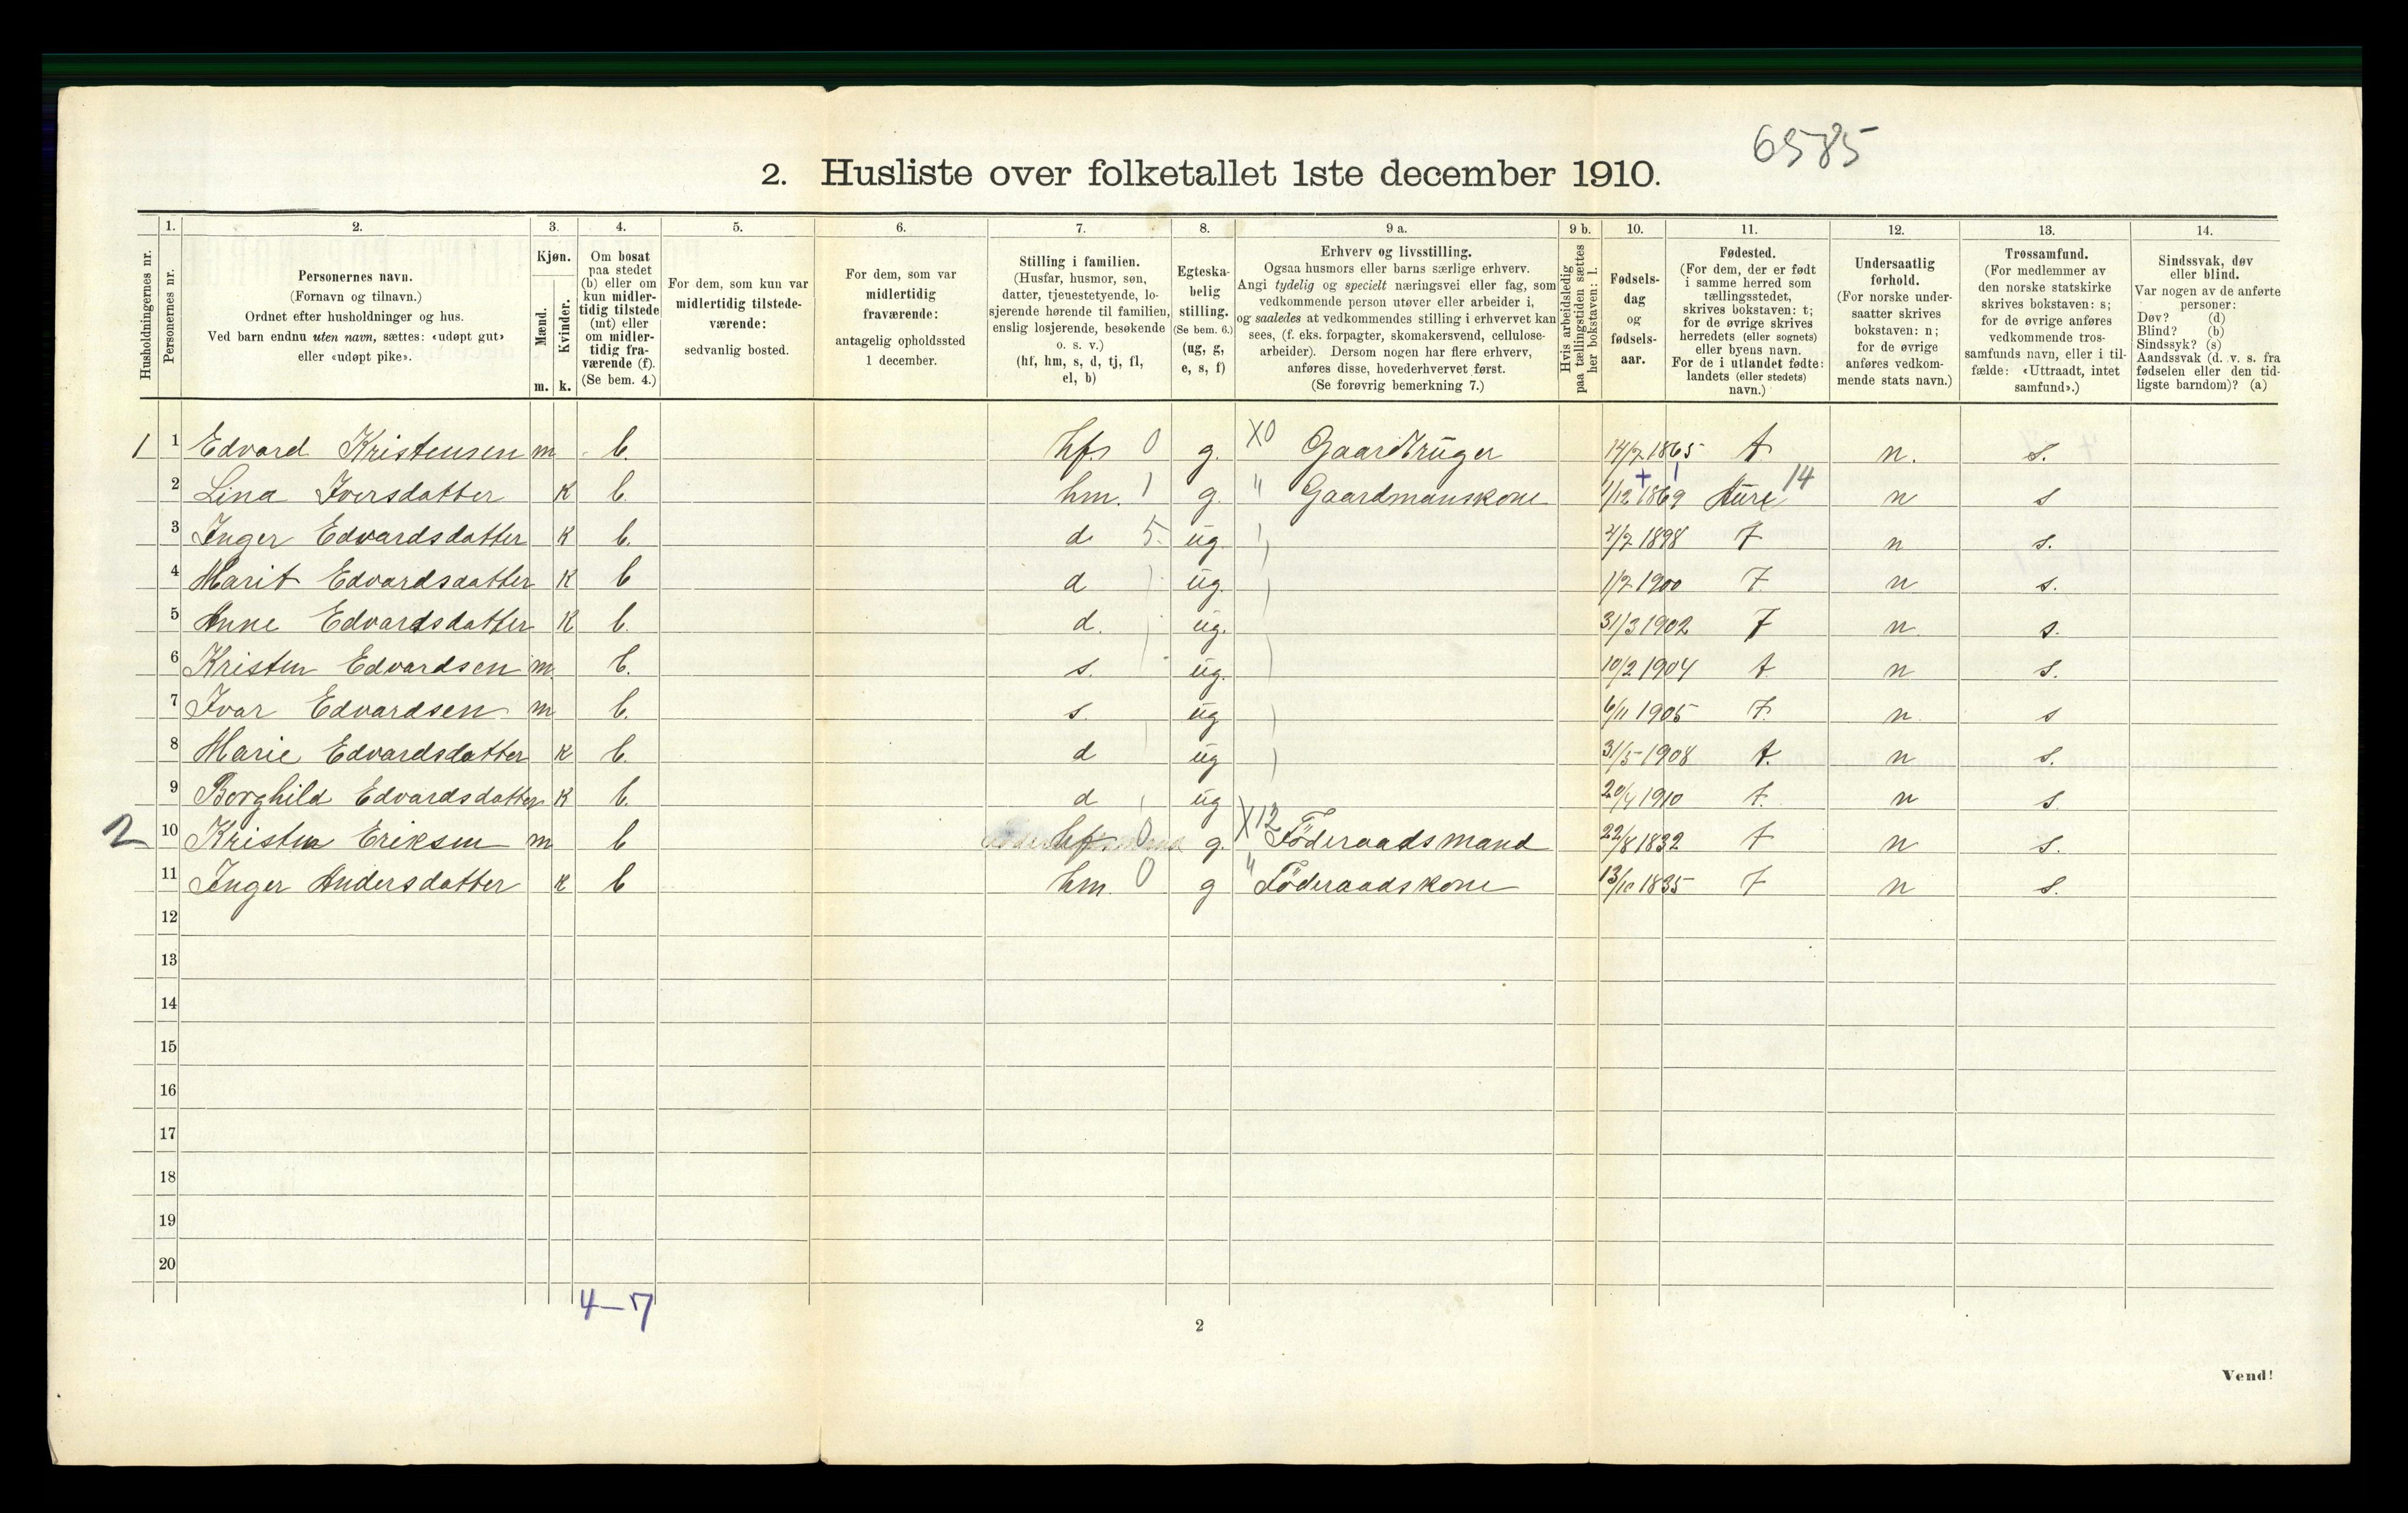 6585
2. Husliste over folketallet 1ste december 1910.
Husholdningernes nr.
1. Personernes nr.
2. Personernes navn. (Fornavn og tilnavn.) Ordnet efter husholdninger og hus. Ved barn endnu uten navn, sættes: «udøpt gut» eller «udøpt pike».
3. Kjøn. Mænd. m. Kvinder. k.
4. Om bosat paa stedet (b) eller om kun midlertidig tilstede (mt) eller om midlertidig fraværende (f). (Se bem. 4.)
5. For dem, som kun var midlertidig tilstedeværende: sedvanlig bosted.
6. For dem, som var midlertidig fraværende: antagelig opholdssted 1 december.
7. Stilling i familien. (Husfar, husmor, søn, datter, tjenestetyende, losjerende hørende til familien, enslig losjerende, besøkende o. s. v.) (hf, hm, s, d, tj, fl, el, b)
8. Egteskabelig stilling. (Se bem. 6.) (ug, g, e, s, f)
9 a. Erhverv og livsstilling. Ogsaa husmors eller barns særlige erhverv. Angi tydelig og specielt næringsvei eller fag, som vedkommende person utøver eller arbeider i, og saaledes at vedkommendes stilling i erhvervet kan sees, (f. eks. forpagter, skomakersvend, cellulosearbeider). Dersom nogen har flere erhverv, anføres disse, hovederhvervet først. (Se forøvrig bemerkning 7.)
9 b. Hvis arbeidsledig paa tællingstiden sættes her bokstaven: l.
10. Fødselsdag og fødselsaar.
11. Fødested. (For dem, der er født i samme herred som tællingsstedet, skrives bokstaven: t; for de øvrige skrives herredets (eller sognets) eller byens navn. For de i utlandet fødte: landets (eller stedets) navn.)
12. Undersaatlig forhold. (For norske undersaatter skrives bokstaven: n; for de øvrige anføres vedkommende stats navn.)
13. Trossamfund. (For medlemmer av den norske statskirke skrives bokstaven: s; for de øvrige anføres vedkommende trossamfunds navn, eller i tilfælde: «Uttraadt, intet samfund».)
14. Sindssvak, døv eller blind. Var nogen av de anførte personer: Døv? (d) Blind? (b) Sindssyk? (s) Aandssvak (d. v. s. fra fødselen eller den tidligste barndom)? (a)
1 1 Edvard Kristensen m b. hf 0 g. X0 Gaardbruger 14/7 1865 t n. s.
2 Lina Iversdatter k b hm. 1 g. " Gaardmanskone 1/12 1869 Aure 14 n s
3 Inger Edvardsdatter k b. d 5. ug. 2/7 1898 t n s.
4 Marit Edvardsdatter k b d ug. 1/7 1900 t n s.
5 Anne Edvardsdatter k b. d. ug. 31/3 1902 t n s.
6 Kristen Edvardsen m b. s. ug. 10/2 1904 t n s.
7 Ivar Edvardsen m b. s. ug 6/11 1905 t. n. s
8 Marie Edvardsdatter k b. d ug 31/5 1908 t. n s.
9 Borghild Edvardsdatter k b. d ug 20/4 1910 t. n s.
2 10 Kristen Eriksen m b hf 0 g. X12 Föderaadsmand 22/8 1832 t n s.
11 Inger Andersdatter k b hm. 0 g " Föderaadskone 13/10 1835 t n s.
12
13
14
15
16
17
18
19
20
4—7
2
Vend!